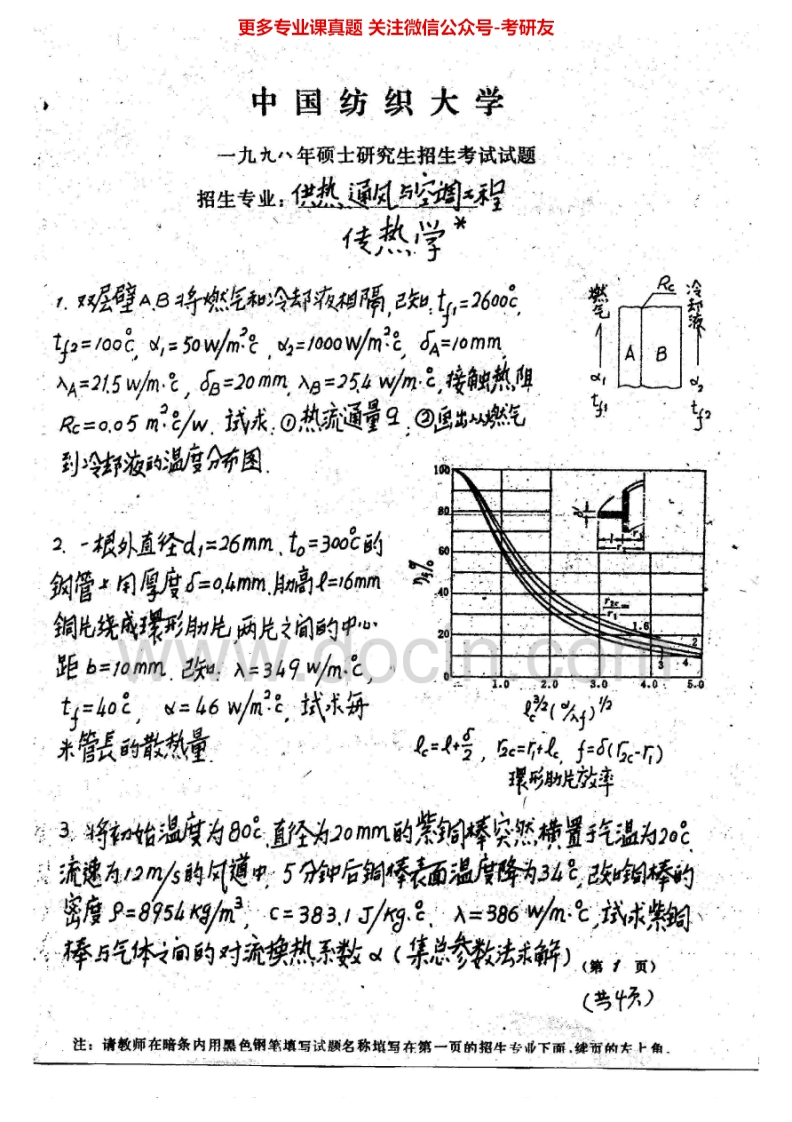 更多专业课真题 关注微信公众号-考研友
中国纺织大学
一九九八年硕士研究生招生考试试题
招生专业：供热、通风与空调工程
传热学*
1. 双层壁A.B将燃气和冷却液相隔,已知:tf1=2600℃,
tf2=100℃, α1=50W/m²·℃, α2=1000W/m²·℃, δA=10mm
λA=21.5 W/m·℃, δB=20mm, λB=25.4 W/m·℃,接触热阻
Rc=0.05 m²·℃/W. 试求:①热流通量q;②画出从燃气
到冷却液的温度分布图.
燃气
α1
tf1
A
B
Rc
冷却液
α2
tf2
2. 一根外直径d1=26mm、t0=300℃的
钢管,用厚度δ=0.4mm,肋高ℓ=16mm
铜片绕成環形肋片,两片之间的中心
距b=10mm.已知:λ=349 W/m·℃,
tf=40℃, α=46 W/m²·℃,试求每
米管長的散热量.
ηf%
100
80
60
40
20
0
1.0 2.0 3.0 4.0 5.0
r2c/r1=
1.6
2
3
4
ℓc^3/2(α/λf)^1/2
ℓc=ℓ+δ/2, r2c=r1+ℓc, f=δ(r2c-r1)
環形肋片效率
www.docin.com
3. 将初始温度为80℃,直径为20mm的紫铜棒突然横置于气温为20℃,
流速为12m/s的风道中,5分钟后铜棒表面温度降为34℃,已知铜棒的
密度ρ=8954kg/m³, c=383.1 J/kg·℃, λ=386 W/m·℃,试求紫铜
棒与气体之间的对流换热系数α(集总参数法求解)
(第 1 页)
(共4页)
注：请教师在暗条内用黑色钢笔填写试题名称填写在第一页的招生专业下面,续页的左上角.